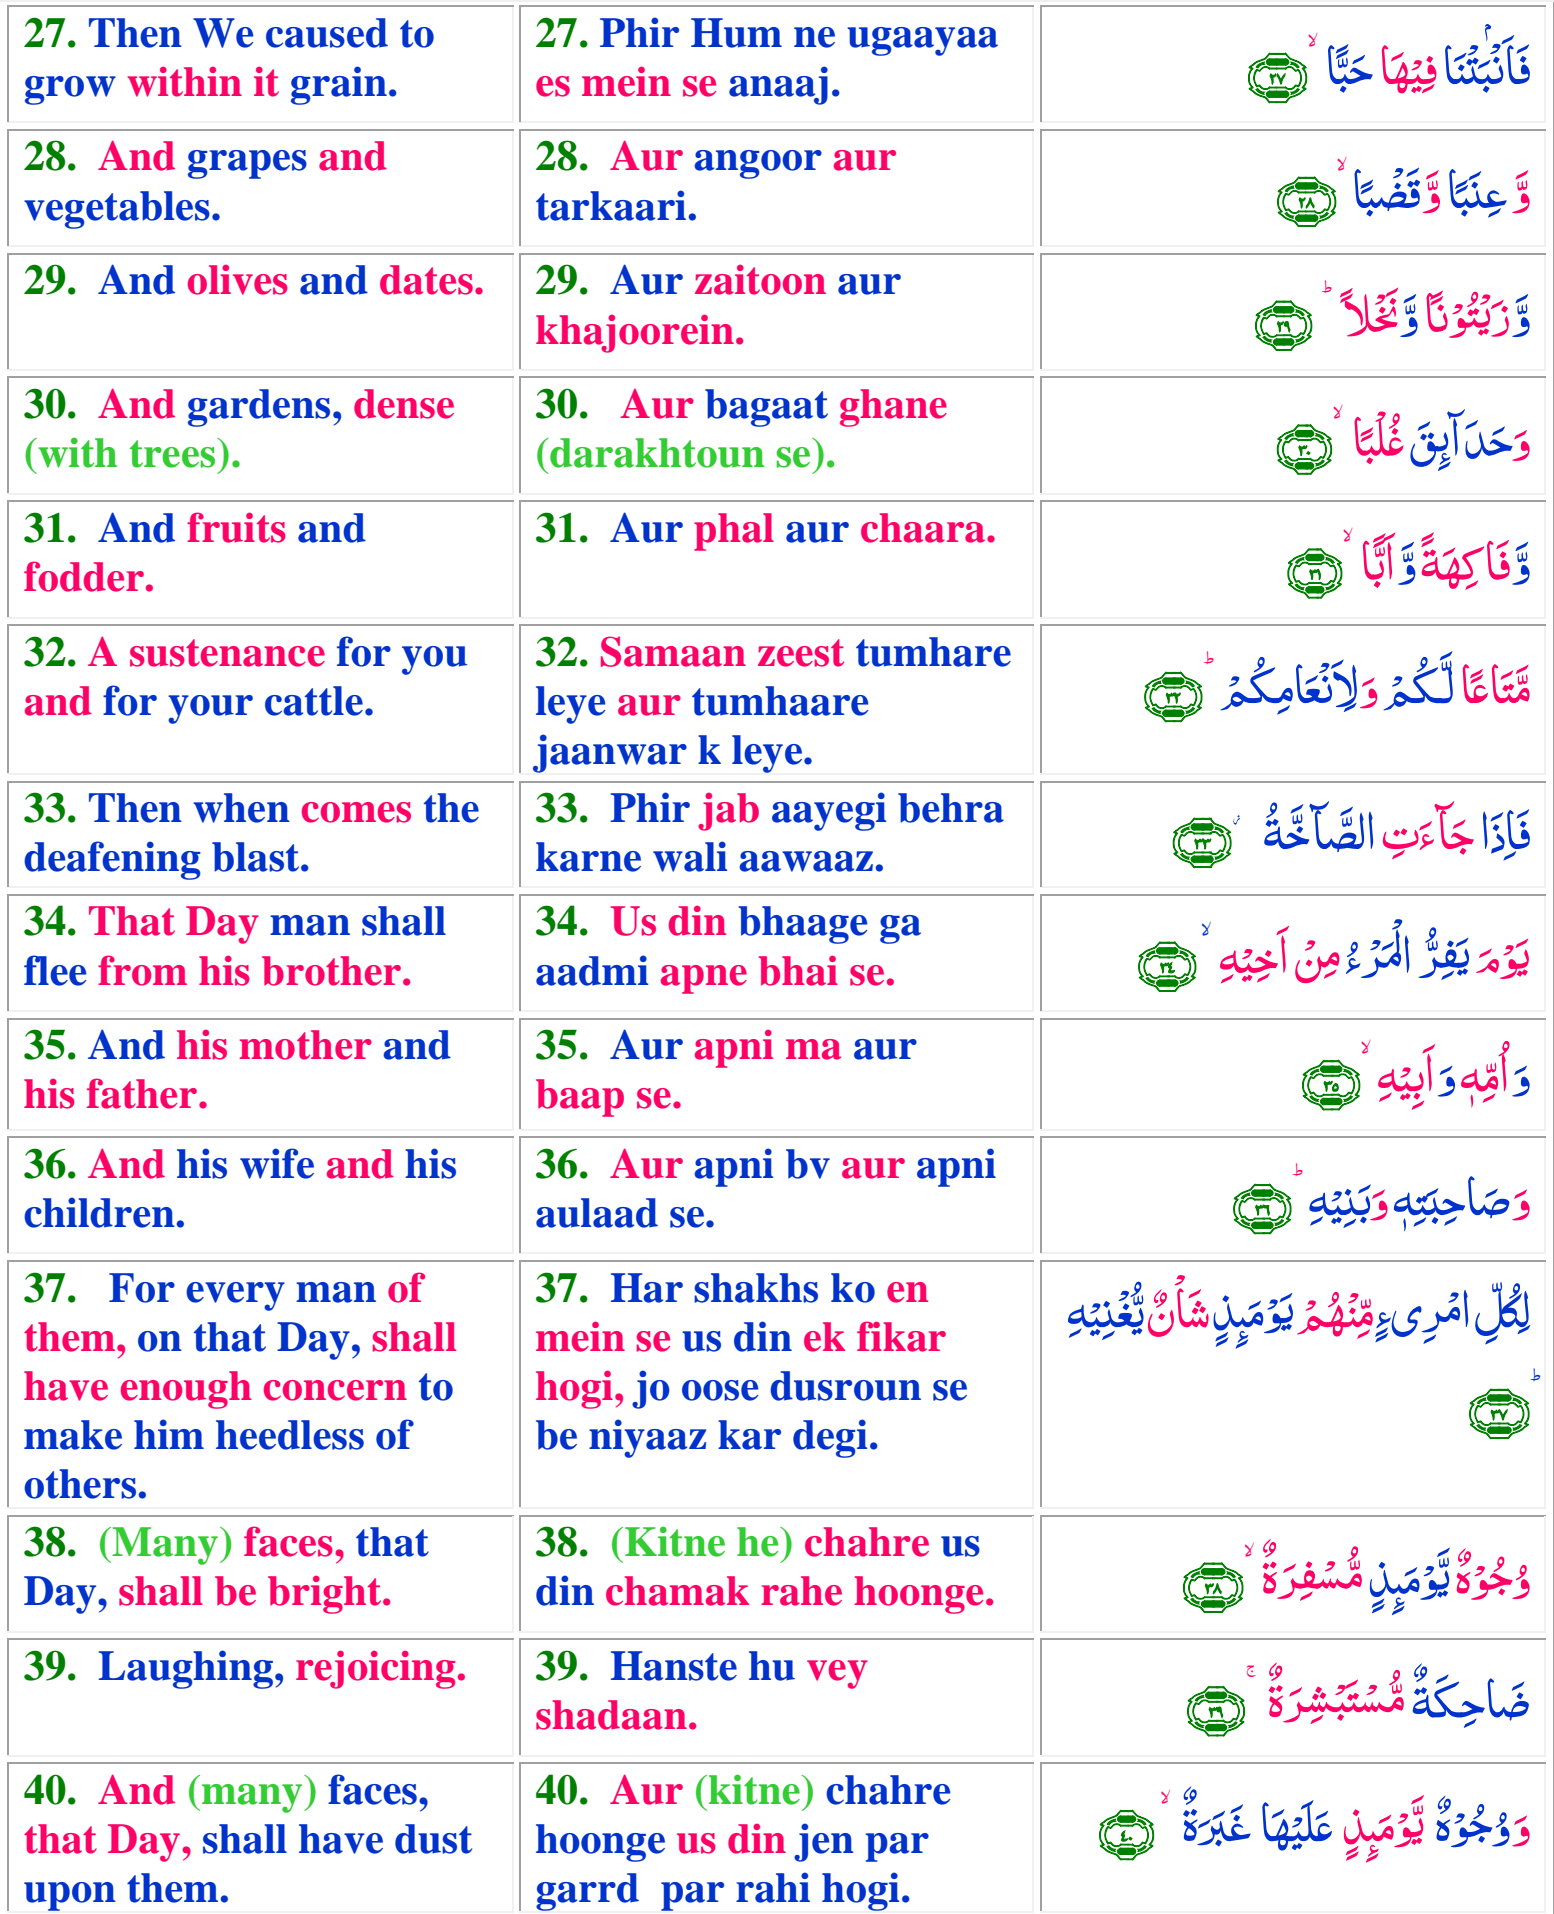 27. Then We caused to
grow within it grain.
27. Phir Hum ne ugaayaa
es mein se anaaj.
فَاَنْۢبَتْنَا فِيْهَا حَبًّا ۙ ﴿۲۷﴾
28. And grapes and
vegetables.
28. Aur angoor aur
tarkaari.
وَّ عِنَبًا وَّ قَضْبًا ۙ ﴿۲۸﴾
29. And olives and dates.
29. Aur zaitoon aur
khajoorein.
وَّ زَيْتُوْنًا وَّ نَخْلاً ؕ ﴿۲۹﴾
30. And gardens, dense
(with trees).
30. Aur bagaat ghane
(darakhtoun se).
وَحَدَآئِقَ غُلْبًا ۙ ﴿۳۰﴾
31. And fruits and
fodder.
31. Aur phal aur chaara.
وَّ فَاكِهَةً وَّ اَبًّا ۙ ﴿۳۱﴾
32. A sustenance for you
and for your cattle.
32. Samaan zeest tumhare
leye aur tumhaare
jaanwar k leye.
مَّتَاعًا لَّكُمْ وَلِاَنْعَامِكُمْ ؕ ﴿۳۲﴾
33. Then when comes the
deafening blast.
33. Phir jab aayegi behra
karne wali aawaaz.
فَاِذَا جَآءَتِ الصَّآخَّةُ ۫ ﴿۳۳﴾
34. That Day man shall
flee from his brother.
34. Us din bhaage ga
aadmi apne bhai se.
يَوْمَ يَفِرُّ الْمَرْءُ مِنْ اَخِيْهِ ۙ ﴿۳٤﴾
35. And his mother and
his father.
35. Aur apni ma aur
baap se.
وَ اُمِّهٖ وَ اَبِيْهِ ۙ ﴿۳۵﴾
36. And his wife and his
children.
36. Aur apni bv aur apni
aulaad se.
وَ صَاحِبَتِهٖ وَبَنِيْهِ ؕ ﴿۳٦﴾
37. For every man of
them, on that Day, shall
have enough concern to
make him heedless of
others.
37. Har shakhs ko en
mein se us din ek fikar
hogi, jo oose dusroun se
be niyaaz kar degi.
لِكُلِّ امْرِیءٍ مِّنْهُمْ يَوْمَئِذٍ شَاْنٌ يُّغْنِيْهِ
ؕ ﴿۳۷﴾
38. (Many) faces, that
Day, shall be bright.
38. (Kitne he) chahre us
din chamak rahe hoonge.
وُجُوْهٌ يَّوْمَئِذٍ مُّسْفِرَةٌ ۙ ﴿۳۸﴾
39. Laughing, rejoicing.
39. Hanste hu vey
shadaan.
ضَاحِكَةٌ مُّسْتَبْشِرَةٌ ۚ ﴿۳۹﴾
40. And (many) faces,
that Day, shall have dust
upon them.
40. Aur (kitne) chahre
hoonge us din jen par
garrd par rahi hogi.
وَ وُجُوْهٌ يَّوْمَئِذٍ عَلَيْهَا غَبَرَةٌ ۙ ﴿٤۰﴾